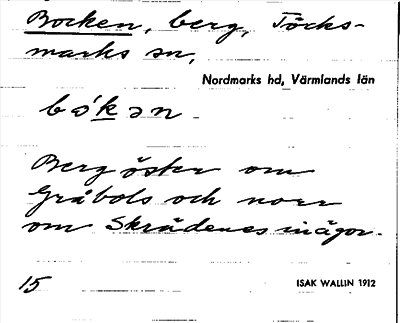 Bocken, berg, Töcks-
marks sn,
Nordmarks hd, Värmlands län
bɷ́kən
Berg öster om
Gråbols och norr
om Skrädenes inägor.
15
ISAK WALLIN 1912